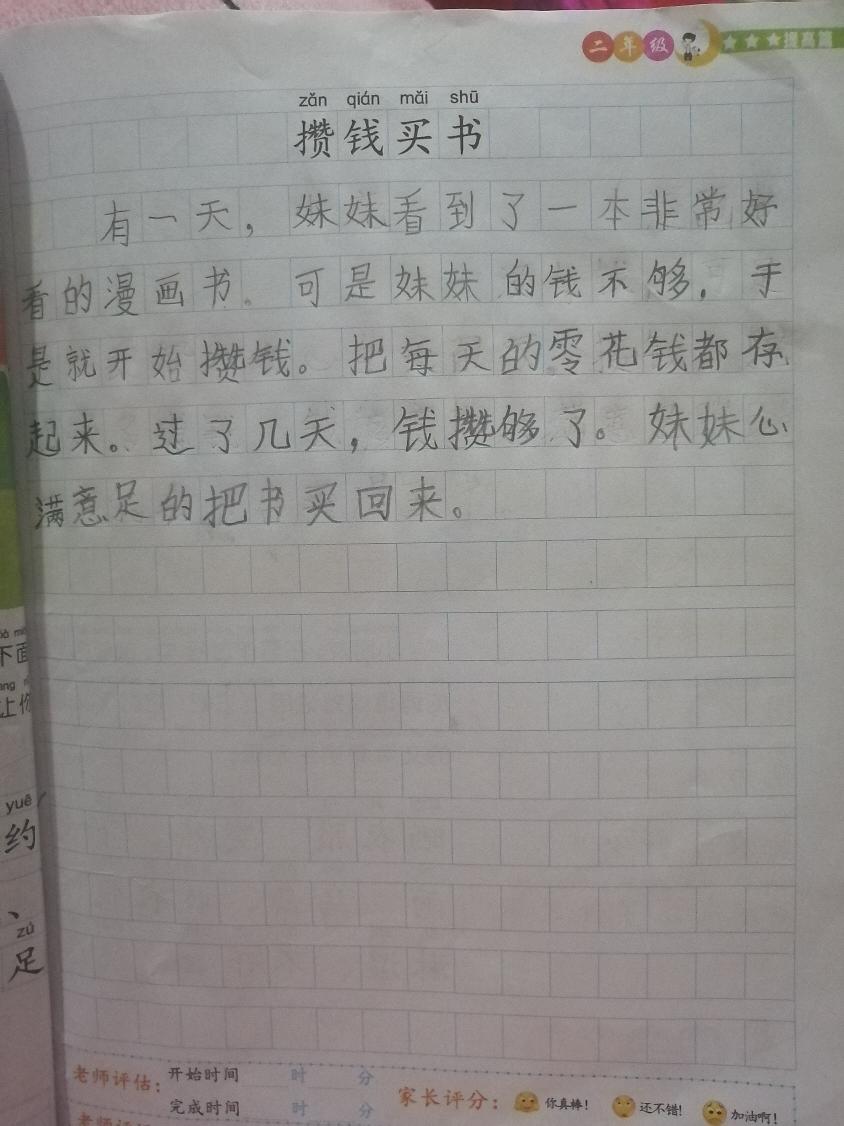 二年级 ★★★提高篇
zǎn qián mǎi shū
攒钱买书
有一天，妹妹看到了一本非常好
看的漫画书。可是妹妹的钱不够，于
是就开始攒钱。把每天的零花钱都存
起来。过了几天，钱攒够了。妹妹心
满意足的把书买回来。
下面
上你
yuē
约
、
zú
足
老师评估：开始时间 时 分
完成时间 时 分
家长评分： 你真棒！ 还不错！ 加油啊！